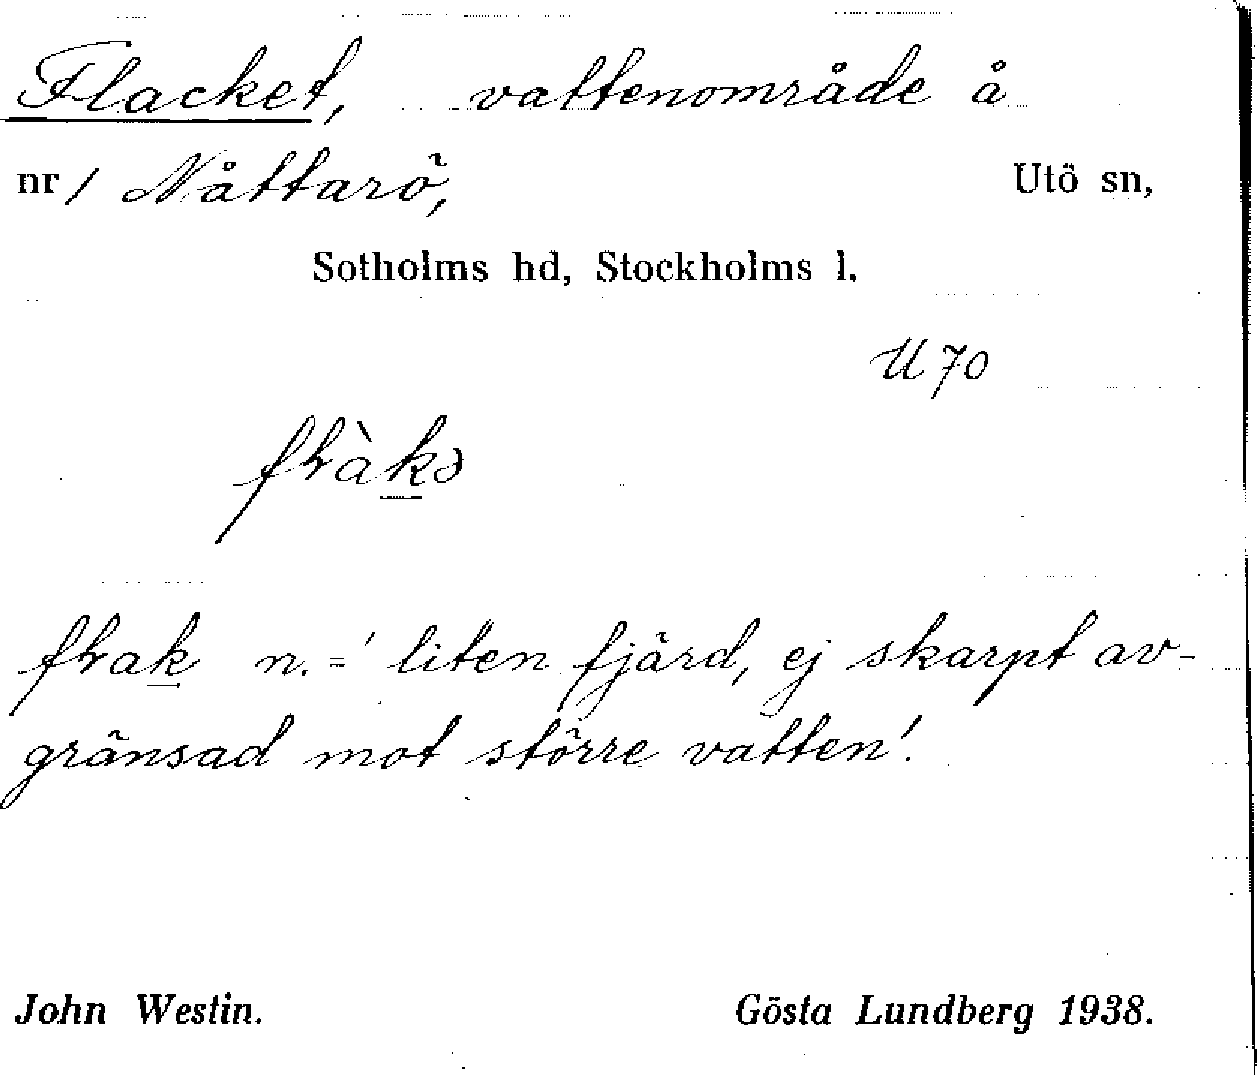 Flacket, vattenområde å
nr 1 Nåttarö, Utö sn,
Sotholms hd, Stockholms l.
U 70
n. = 'liten fjärd, ej skarpt av-
gränsad mot större vatten'.
John Westin. Gösta Lundberg 1938.